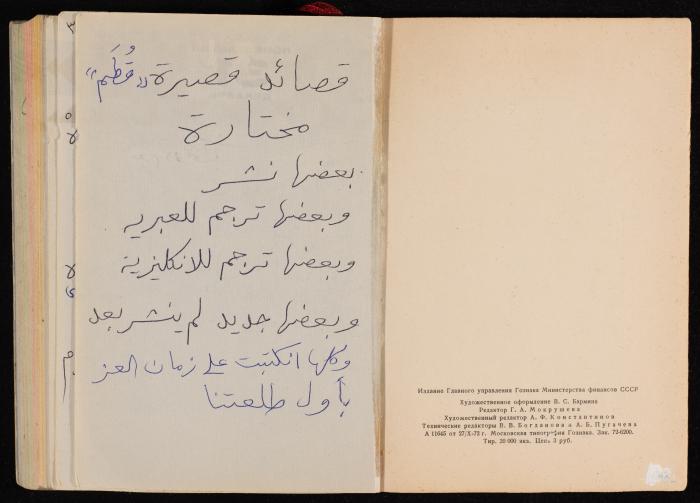 قصائد قصيرة "قُطَم"
مختارة
بعضها نشر
وبعضها ترجم للعبريه
وبعضها ترجم للانكليزية
وبعضها جديد لم ينشر بعد
وكلها انكتبت على زمان العز
بأول طلعتنا
Издание Главного управления Гознака Министерства финансов СССР
Художественное оформление В. С. Бармина
Редактор Г. А. Мокрушева
Художественный редактор А. Ф. Константинов
Технические редакторы В. В. Богданова и А. Б. Пугачева
А 11645 от 27/X-72 г. Московская типография Гознака. Зак. 72-6200.
Тир. 20 000 экз. Цена 3 руб.